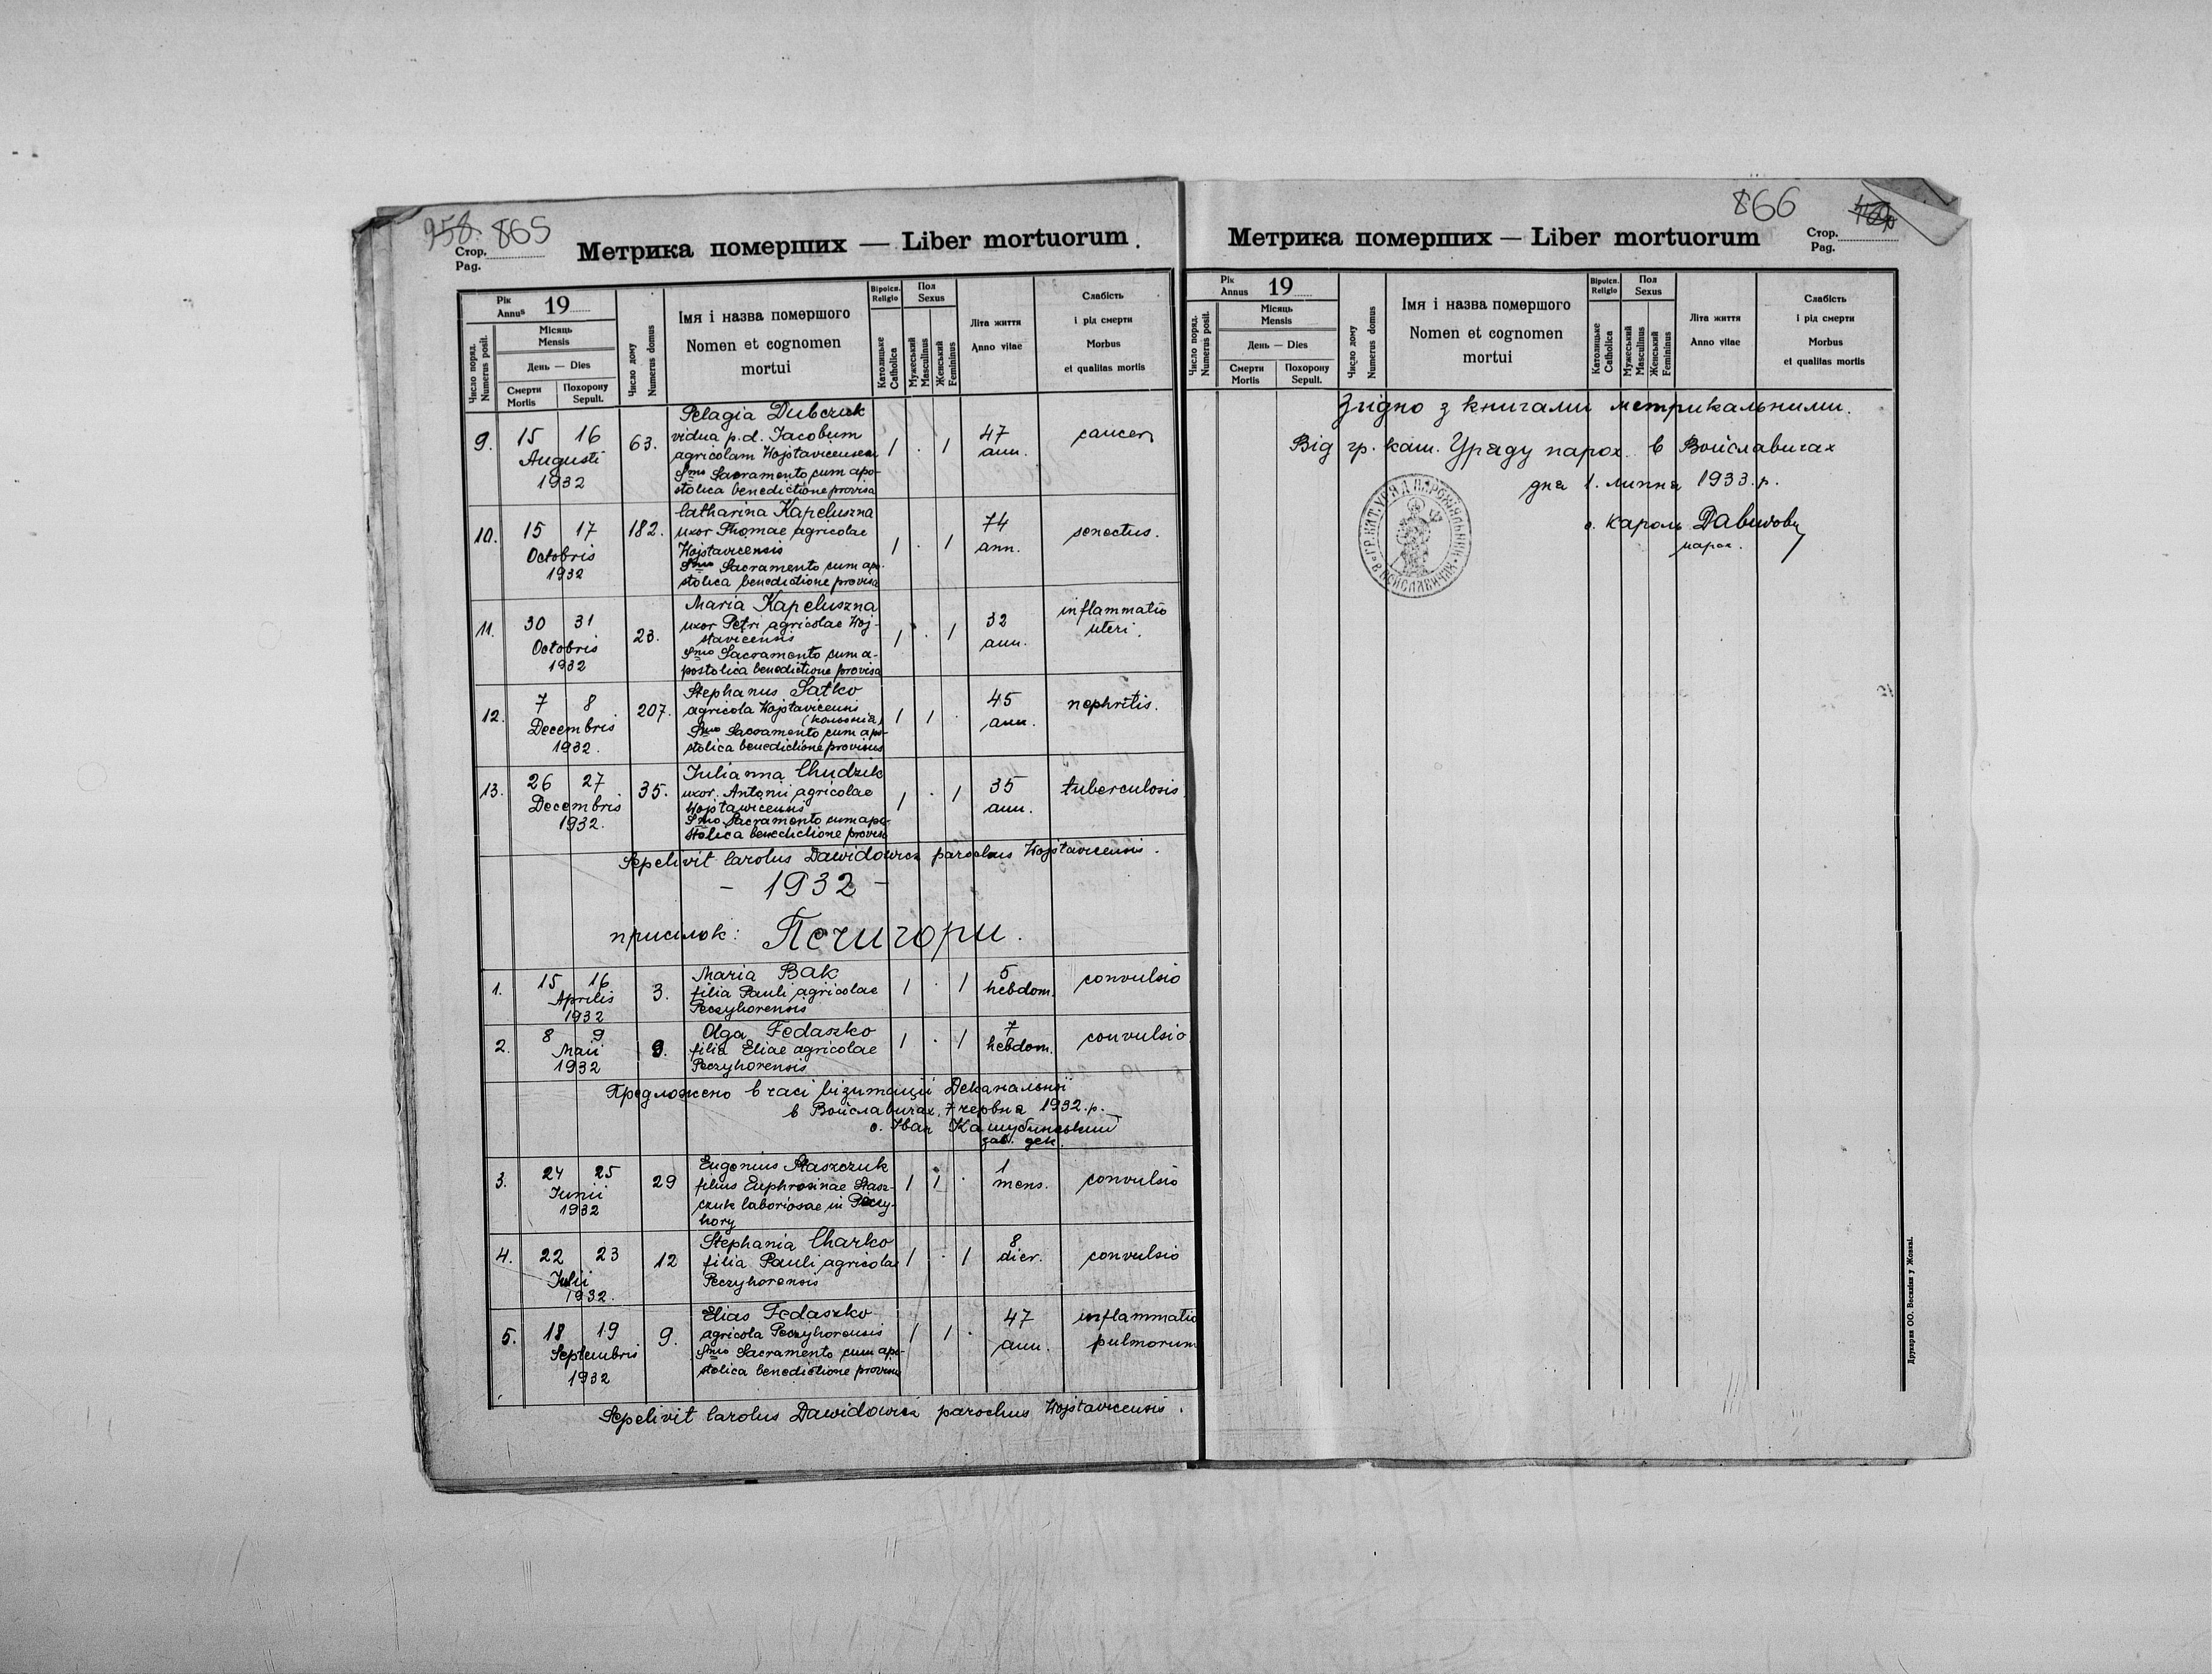 958. 865
Стор.
Pag.
Метрика померших — Liber mortuorum.
Рік
Annus 19
Число поряд.
Numerus posit.
Місяць
Mensis
День — Dies
Смерти
Mortis
Похорону
Sepult.
Число дому
Numerus domus
Імя і назва помершого
Nomen et cognomen
mortui
Віроісп.
Religio
Католицьке
Catholica
Пол
Sexus
Мужеський
Masculinus
Женський
Femininus
Літа життя
Anno vitae
Слабість
і рід смерти
Morbus
et qualitas mortis
9. 15 16 Augusti 1932 63.
Pelagia Dubczuk
vidua p.d. Jacobum
agricolam Wojstavicensem
Smo Sacramento cum apo-
stolica benedictione provisa
1 . 1 47 ann. cancer
10. 15 17 Octobris 1932 182.
Catharina Kapeluszna
uxor Thomae agricolae
Wojstavicensis
Smo Sacramento cum apo-
stolica benedictione provisa
1 . 1 74 ann. senectus.
11. 30 31 Octobris 1932 23.
Maria Kapeluszna
uxor Petri agricolae Woj-
stavicensis
Smo Sacramento cum a-
postolica benedictione provisa
1 . 1 32 ann. inflammatio uteri.
12. 7 8 Decembris 1932. 207.
Stephanus Satko
agricola Wojstavicensis
(кольонія)
Smo Sacramento cum apo-
stolica benedictione provisus
1 1 . 45 ann. nephritis.
13. 26 27 Decembris 1932. 35.
Julianna Chudzik
uxor Antonii agricolae
Wojstawicensis
Smo Sacramento cum apo-
stolica benedictione provisa
1 . 1 35 ann. tuberculosis.
Sepelivit Carolus Dawidowicz parochus Wojstavicensis.
- 1932 -
присілок: Печигори.
1. 15 16 Aprilis 1932 3.
Maria Bak
filia Pauli agricolae
Peczyhorensis
1 . 1 5 hebdom. convulsio
2. 8 9 Maii 1932 9.
Olga Fedaszko
filia Eliae agricolae
Peczyhorensis
1 . 1 7 hebdom. convulsio
Предложено в часі візитації Деканальної
в Войславичах, 7 червня 1932.р.
о. Іван Кашубинський
зав. дек.
3. 24 25 Junii 1932 29
Eugenius Staszczuk
filius Euphrosinae Stasz-
czuk laboriosae in Peczy-
hory
1 1 . 1 mens. convulsio
4. 22 23 Julii 1932. 12
Stephania Charko
filia Pauli agricolae
Peczyhorensis
1 . 1 8 dier. convulsio
5. 18 19 Septembris 1932 9.
Elias Fedaszko
agricola Peczyhorensis
Smo Sacramento cum apo-
stolica benedictione provisus
1 1 . 47 ann. inflammatio pulmorum
Sepelivit Carolus Dawidowicz parochus Wojstavicensis.
866
Метрика померших — Liber mortuorum
Стор.
Pag.
Рік
Annus 19
Число поряд.
Numerus posit.
Місяць
Mensis
День — Dies
Смерти
Mortis
Похорону
Sepult.
Число дому
Numerus domus
Імя і назва помершого
Nomen et cognomen
mortui
Віроісп.
Religio
Католицьке
Catholica
Пол
Sexus
Мужеський
Masculinus
Женський
Femininus
Літа життя
Anno vitae
Слабість
і рід смерти
Morbus
et qualitas mortis
Згідно з книгами метрикальними.
Від гр. кат. Уряду парох. в Войславичах
дня 1. липня 1933.р.
о. Кароль Давидович
парох.
ГР.КАТ.УРЯД ПАРОХІЯЛЬНИЙ В ВОЙСЛАВИЧАХ
Друкарня ОО. Василіян у Жовкві.